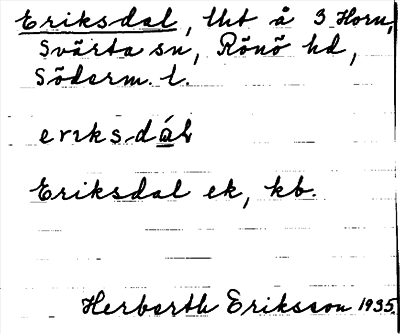 Eriksdal, lht å 3 Horn,
Svärta sn, Rönö hd,
Söderm. l.
eriksdál
Eriksdal ek, kb.
Herberth Eriksson 1935.